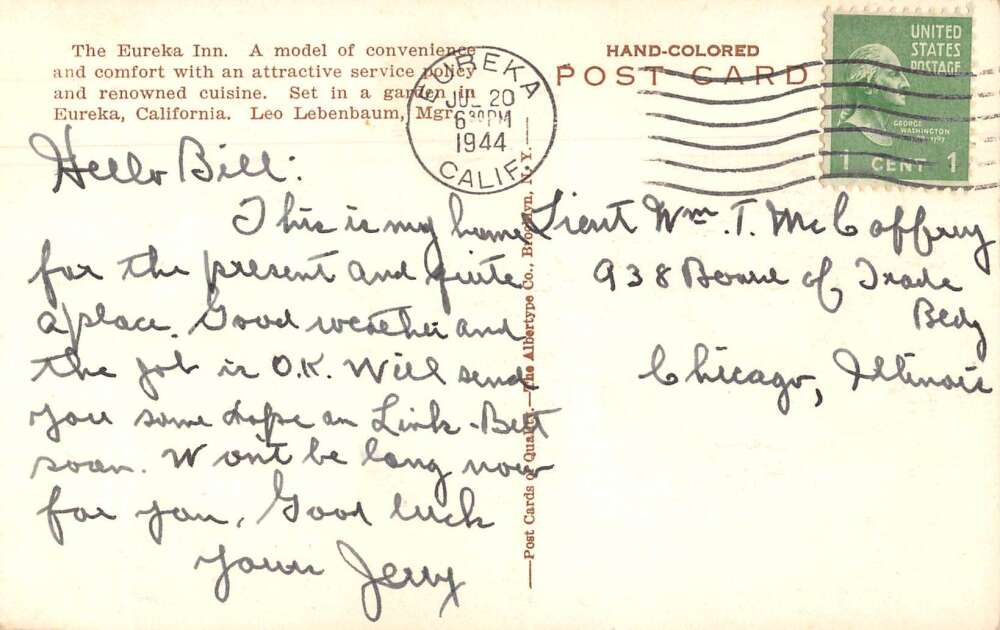 The Eureka Inn. A model of convenience
and comfort with an attractive service policy
and renowned cuisine. Set in a garden in
Eureka, California. Leo Lebenbaum, Mgr.
EUREKA
JUL 20
6 30 PM
1944
CALIF.
HAND-COLORED
POST CARD
UNITED
STATES
POSTAGE
GEORGE
WASHINGTON
1 CENT 1
Hello Bill:
This is my home
for the present and quite
a place. Good weather and
the job is O.K. Will send
you some dope on Link-Belt
soon. Won't be long now
for you. Good luck
Yours Jerry
Lieut Wm. T. McCaffrey
938 Board of Trade
Bldg
Chicago, Illinois
Post Cards of Quality.—The Albertype Co., Brooklyn, N. Y.